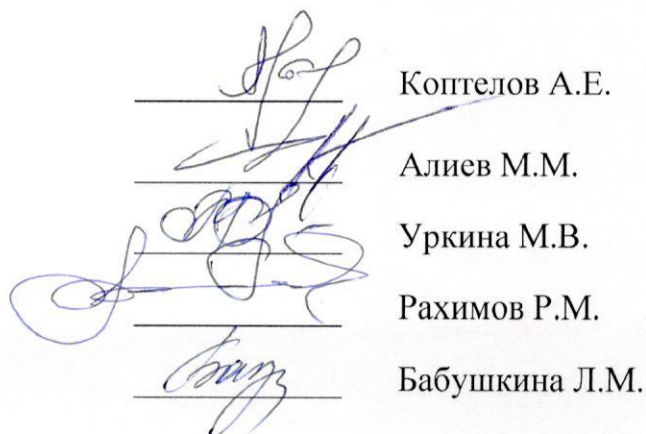 Коптелов А.Е.
Алиев М.М.
Уркина М.В.
Рахимов Р.М.
Бабушкина Л.М.